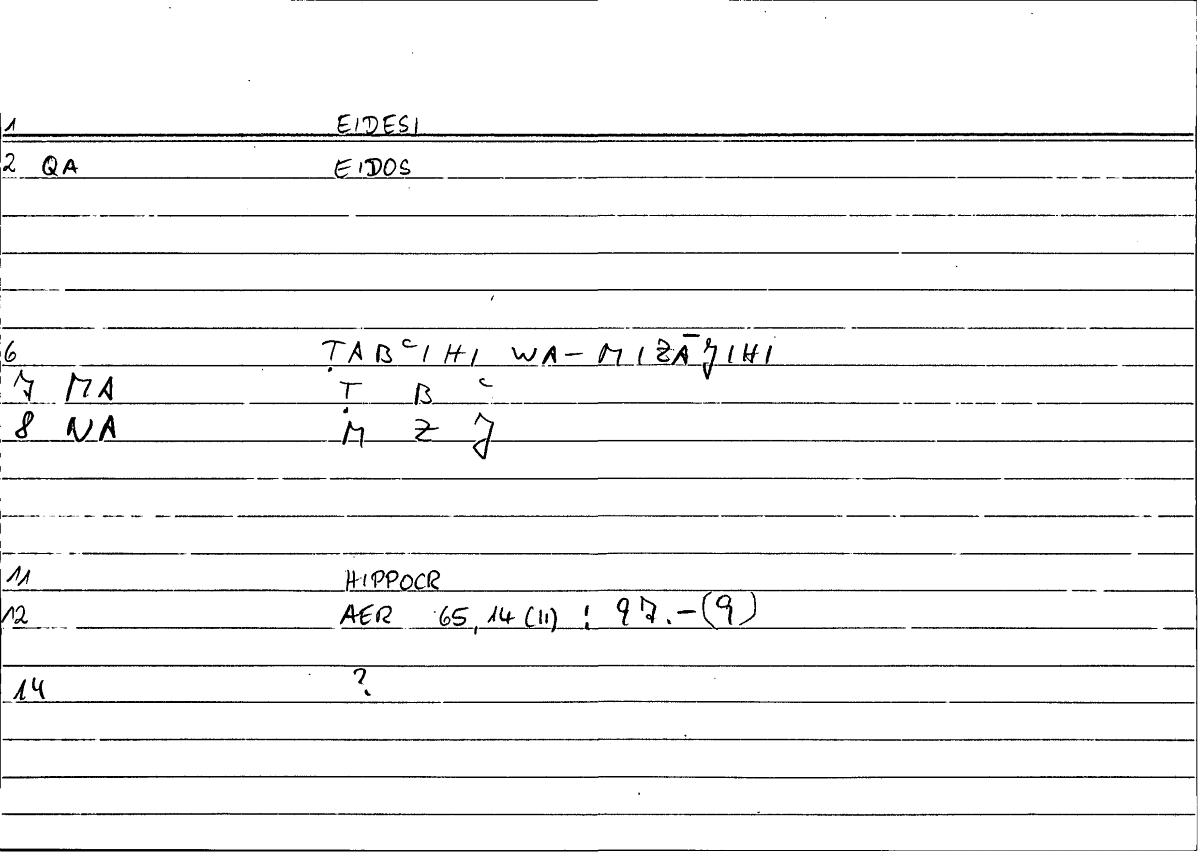 1 EIDESI
2 QA EIDOS
6 ṬABᶜIHI WA-MIZĀJIHI
7 MA Ṭ B ᶜ
8 NA M Z J
11 HIPPOCR
12 AER 65,14 (11) : 97.-(9)
14 ?